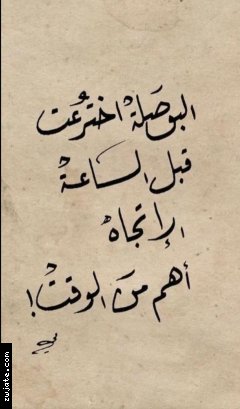 البوصَلةْ اختُرعت
قبل الساعةْ
الإتجاهْ
أهم منَ الوقتْ!
zujate.com